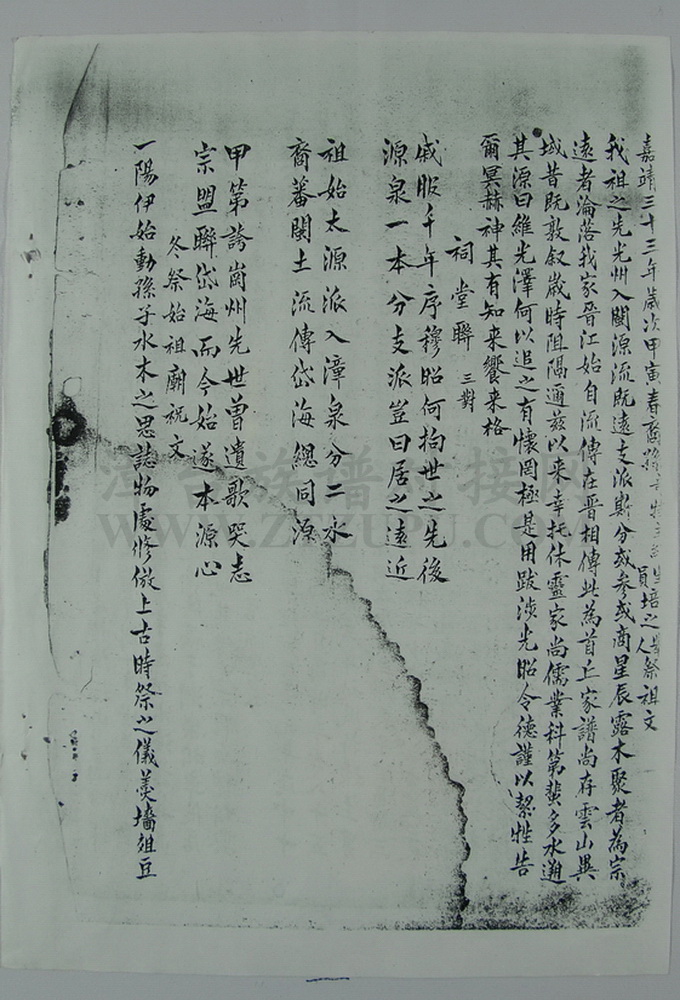 嘉靖三十三年歲次甲寅春裔孫 生員培之舉人祭祖文
我祖之先光州入閩源流既遠支派斯分或參或商星辰露木聚者為宗
遠者淪落我家晉江始自流傳在晉相傳此為首丘家譜尚存雲山異
域昔既敦叙歲時阻隔邇茲以來幸托休靈家尚儒業科第蜚多水遡
其源曰維光澤何以追之有懷罔極是用跋涉光昭令德謹以潔牲告
爾冥赫神其有知来饗来格
祠堂聯 三對
咸服千年序穆昭何拘世之先後
源泉一本分支派豈曰居之遠近
祖始太源派入漳泉分二水
裔蕃閩土流傳岱海總同源
甲第誇崗州先世曾遺歌哭志
宗盟聯岱海而今始遂本源心
冬祭始祖廟祝文
一陽伊始動孫子水木之思誌物處修倣上古時祭之儀羹墻俎豆
WWW.ZUZUPU.COM